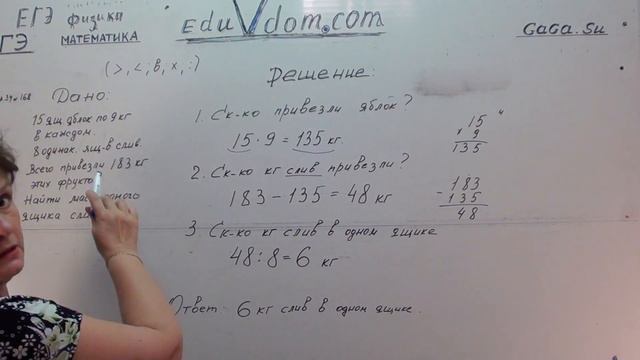 ЕГЭ физика
ГЭ МАТЕМАТИКА
EduVdom.com
GaGa.Su
(>,<; в, х, :)
Дано:
15 ящ яблок по 9 кг
в каждом.
8 одинак. ящ-в слив.
Всего привезли 183 кг
этих
Найти
ящика
Решение:
1. Ск-ко привезли яблок?
15 · 9 = 135 кг.
15
× 9
135
2. Ск-ко кг слив привезли?
183 - 135 = 48 кг
183
- 135
48
3. Ск-ко кг слив в одном ящике
48 : 8 = 6 кг
Ответ - 6 кг слив в одном ящике.